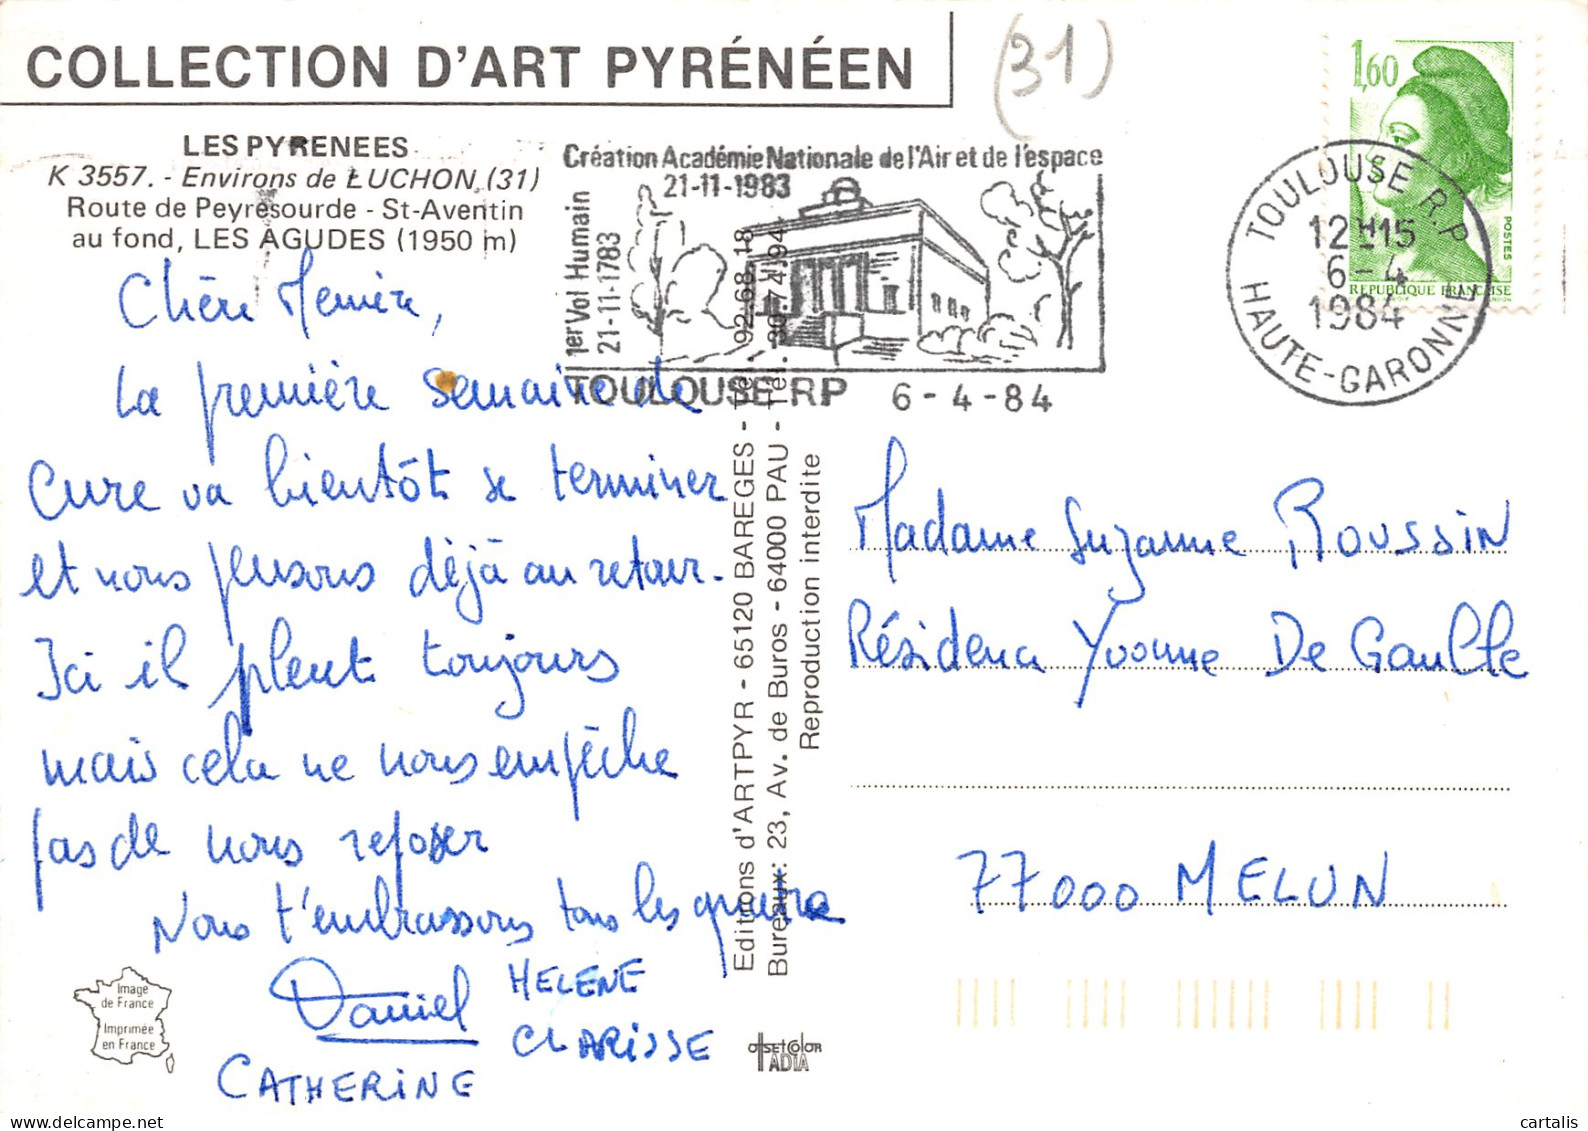 COLLECTION D'ART PYRÉNÉEN
(31)
LES PYRENEES
K 3557. - Environs de LUCHON (31)
Route de Peyresourde - St-Aventin
au fond, LES AGUDES (1950 m)
Création Académie Nationale de l'Air et de l'espace
21-11-1983
1er Vol Humain
21-11-1783
TOULOUSE RP 6-4-84
1,60
POSTES
REPUBLIQUE FRANÇAISE
TOULOUSE R.P.
12H15
6-4
1984
HAUTE-GARONNE
Chère Mémère,
La première semaine de
cure va bientôt se terminer
et nous pensons déjà au retour.
Ici il pleut toujours
mais cela ne nous empêche
pas de nous reposer
Nous t'embrassons tous les quatre
Daniel HELENE
CLARISSE
CATHERINE
Editions d'ARTPYR - 65120 BAREGES - Tél. 92.68.18
Bureaux: 23, Av. de Buros - 64000 PAU - Tél. 30.74.94
Reproduction interdite
Madame Suzanne ROUSSIN
Résidence Yvonne De Gaulle
77000 MELUN
Image
de France
Imprimée
en France
OFFSETCOLOR
ADIA
cartalis